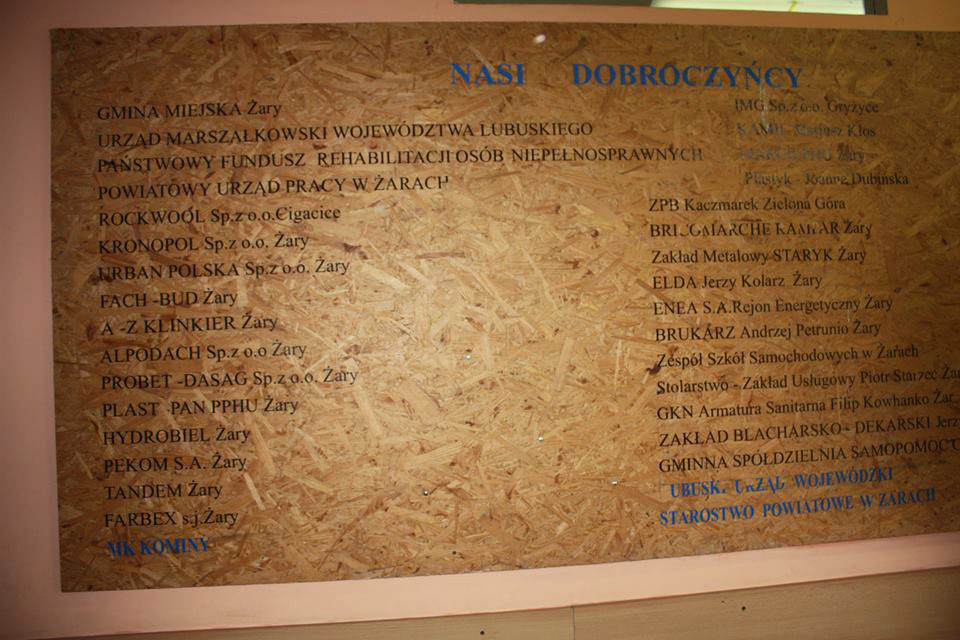 NASI DOBROCZYŃCY
GMINA MIEJSKA Żary
URZĄD MARSZAŁKOWSKI WOJEWÓDZTWA LUBUSKIEGO
PAŃSTWOWY FUNDUSZ REHABILITACJI OSÓB NIEPEŁNOSPRAWNYCH
POWIATOWY URZĄD PRACY W ŻARACH
ROCKWOOL Sp.z o.o.Cigacice
KRONOPOL Sp.z o.o. Żary
URBAN POLSKA Sp.z o.o. Żary
FACH -BUD Żary
A -Z KLINKIER Żary
ALPODACH Sp.z o.o Żary
PROBET -DASAG Sp.z o.o. Żary
PLAST -PAN PPHU Żary
HYDROBIEL Żary
PEKOM S.A. Żary
TANDEM Żary
FARBEX s.j.Żary
MK KOMINY
IMG Sp.z o.o. Gryżyce
KAMIL Mariusz Kłos
PHU Żary
Plastyk - Joanna Dubińska
ZPB Kaczmarek Zielona Góra
BRICOMARCHE KAMAR Żary
Zakład Metalowy STARYK Żary
ELDA Jerzy Kolarz Żary
ENEA S.A.Rejon Energetyczny Żary
BRUKARZ Andrzej Petrunio Żary
Zespół Szkół Samochodowych w Żarach
Stolarstwo - Zakład Usługowy Piotr Starzec Żar
GKN Armatura Sanitarna Filip Kowhanko Żar
ZAKŁAD BLACHARSKO - DEKARSKI Jerz
GMINNA SPÓŁDZIELNIA SAMOPOMOC
UBUSK. URZĄD WOJEWÓDZKI
STAROSTWO POWIATOWE W ŻARACH